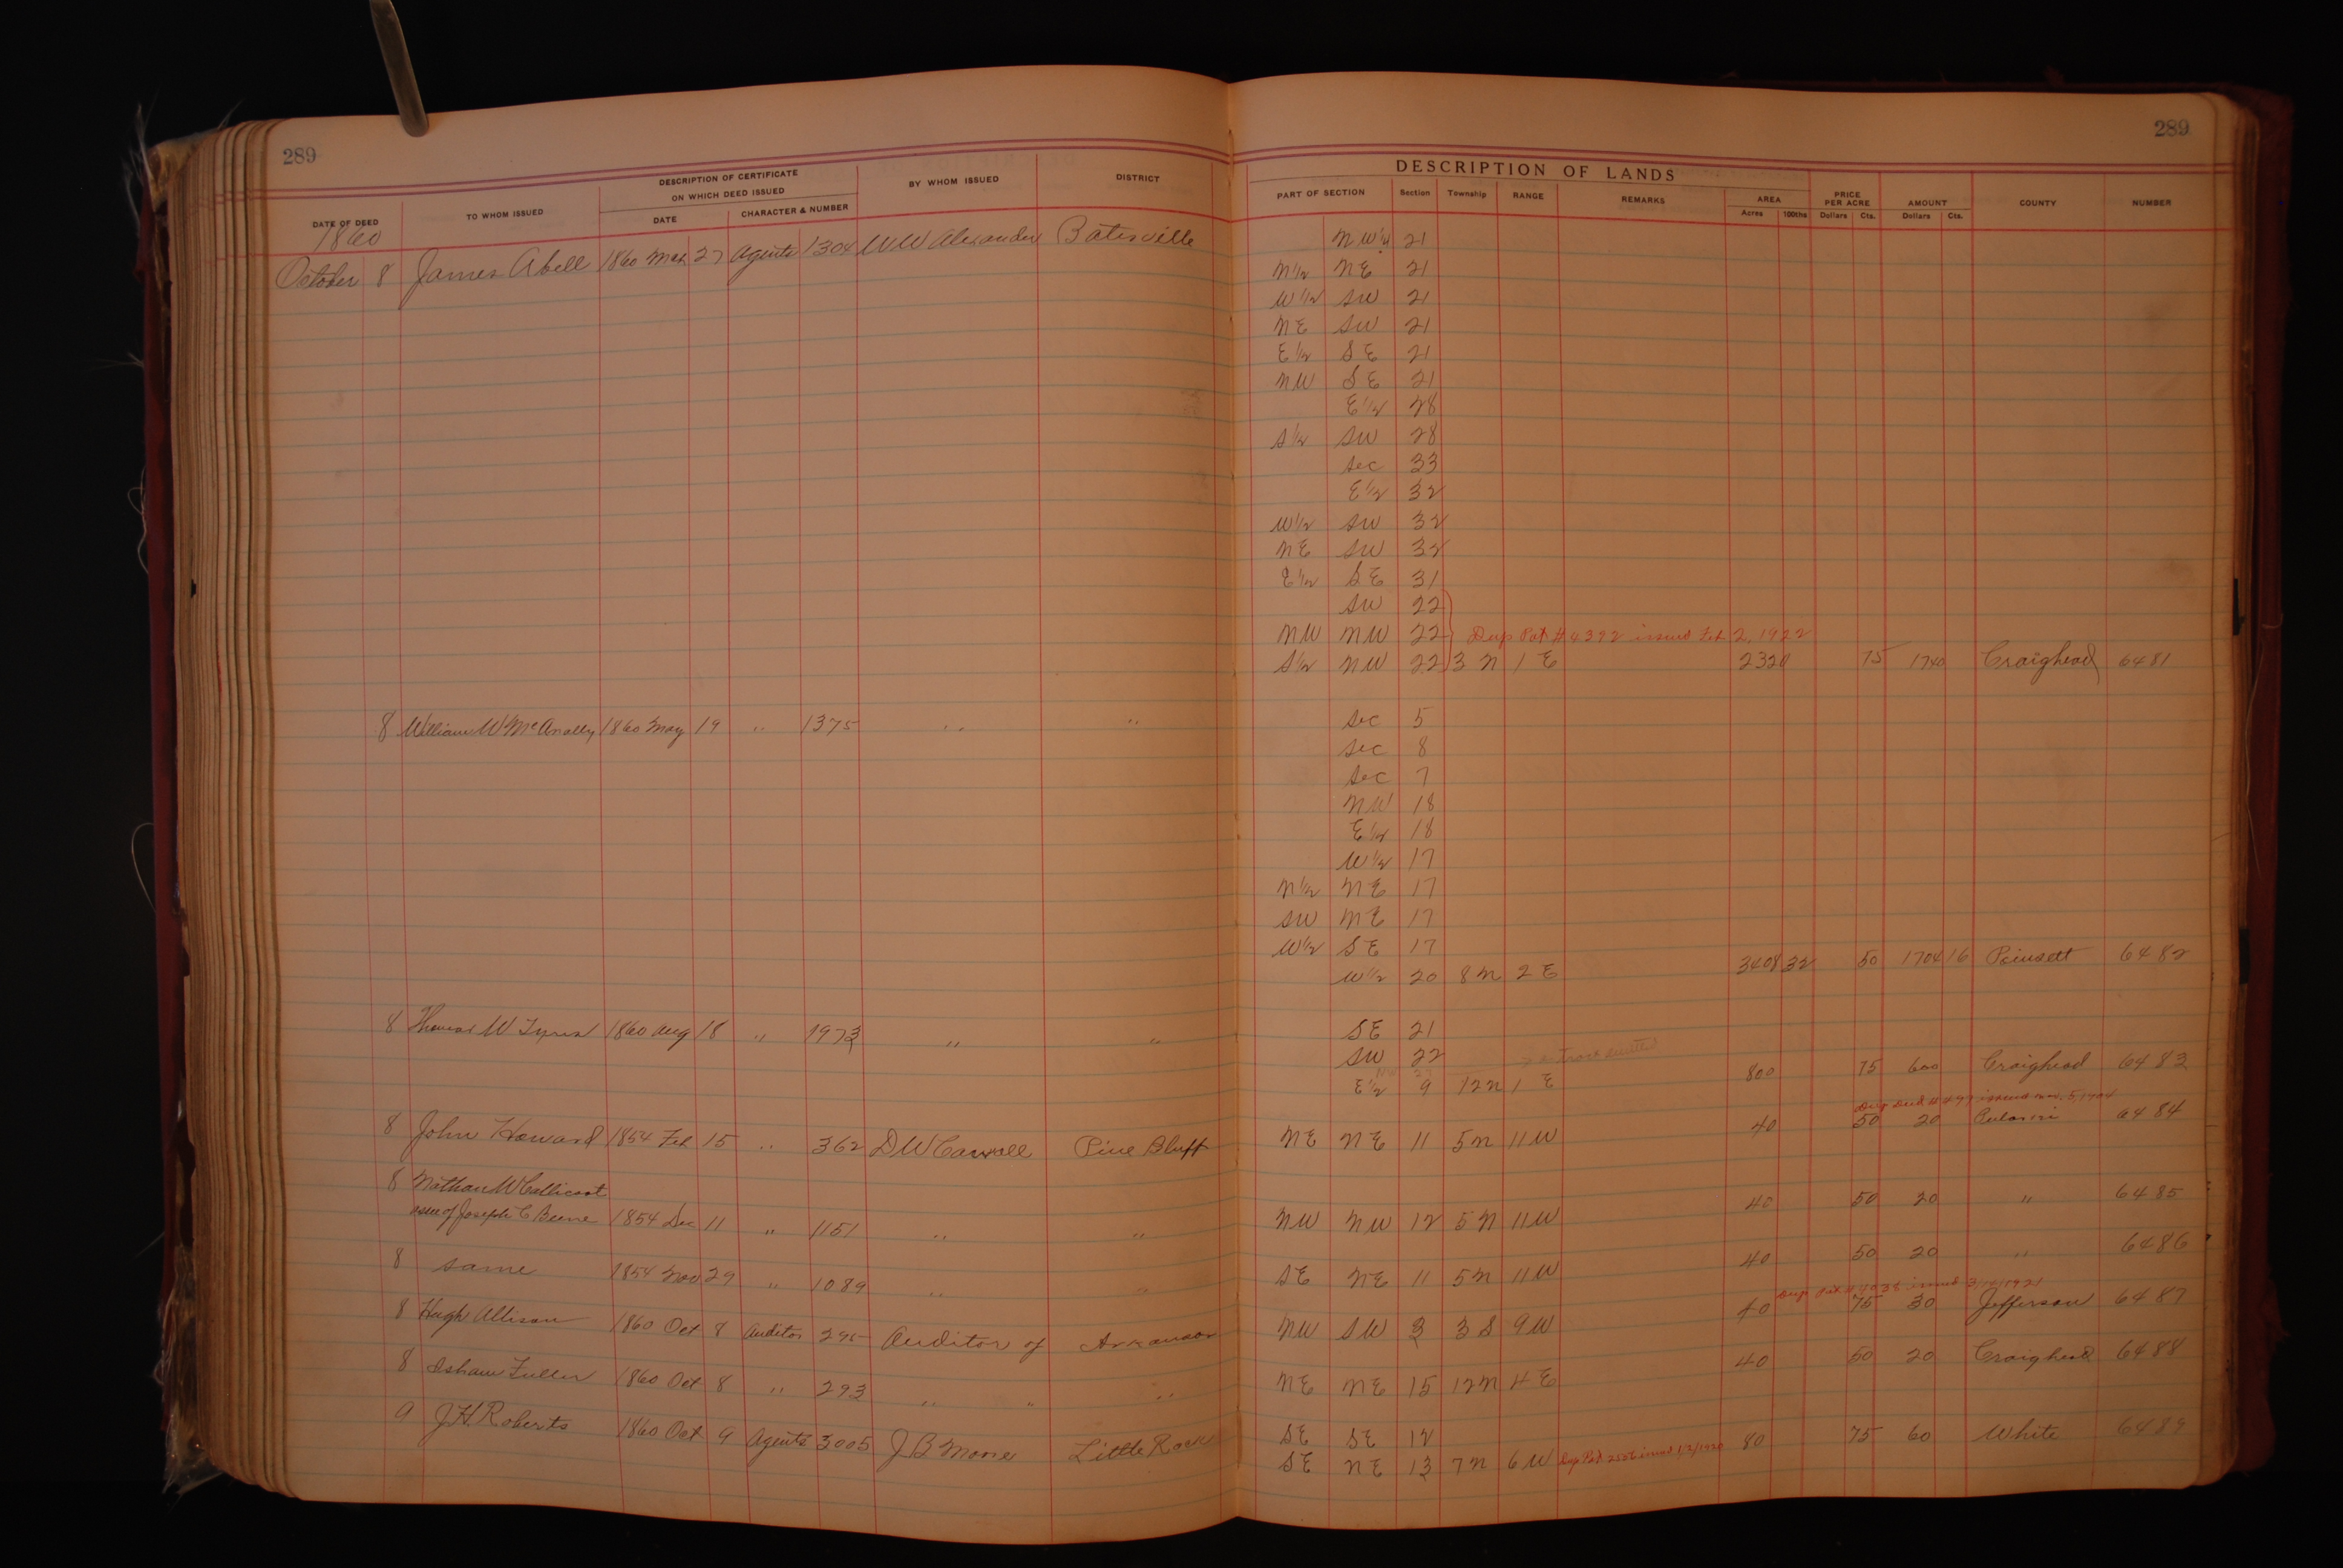 289
DATE OF DEED TO WHOM ISSUED DESCRIPTION OF CERTIFICATE ON WHICH DEED ISSUED DATE CHARACTER & NUMBER BY WHOM ISSUED DISTRICT
1860
October 8 James Abell 1860 Mar 27 Agents 1304 W W Alexander Batesville
8 William W McAnally 1860 May 19 " 1375 " "
8 Thomas W 1860 Aug 18 " 1973 " "
8 John Howard 1854 Feb 15 " 362 D W Carroll Pine Bluff
8 Nathan W Callicoat
assee of Joseph C Beene 1854 Dec 11 " 1151 " "
8 same 1854 Nov 29 " 1089 " "
8 Hugh Allison 1860 Oct 8 Auditor 295 Auditor of Arkansas
8 Isham Fuller 1860 Oct 8 " 293 " " "
9 J. H. Roberts 1860 Oct 9 Agents 3005 J B Moore Little Rock
289
DESCRIPTION OF LANDS
PART OF SECTION Section Township RANGE REMARKS AREA Acres 100ths PRICE PER ACRE Dollars Cts. AMOUNT Dollars Cts. COUNTY NUMBER
NW 1/4 21
N 1/2 NE 21
W 1/2 SW 21
NE SW 21
E 1/2 SE 21
NW SE 21
E 1/2 28
S 1/2 SW 28
Sec 33
E 1/2 32
W 1/2 SW 32
NE SW 32
E 1/2 SE 31
SW 22
NW NW 22 Dup Pat # 4392 issued Feb 2, 1922
S 1/2 NW 22 3 N 1 E 2320 75 1740 Craighead 6481
Sec 5
Sec 8
Sec 7
NW 18
E 1/2 18
W 1/2 17
N 1/2 NE 17
SW NE 17
W 1/2 SE 17
W 1/2 20 8 N 2 E 3408 32 50 1704 16 Poinsett 6482
SE 21
SW 22
E 1/2 9 12 N 1 E 800 75 600 Craighead 6483
NE NE 11 5 N 11 W 40 50 20 Pulaski 6484
NW NW 12 5 N 11 W 40 50 20 " 6485
SE NE 11 5 N 11 W 40 50 20 " 6486
Dup Pat issued 3/14/1921
NW SW 3 3 S 9 W 40 75 30 Jefferson 6487
NE NE 15 12 N 4 E 40 50 20 Craighead 6488
SE SE 12
SE NE 13 7 N 6 W Dup Pat issued 1/2/1920 80 75 60 White 6489